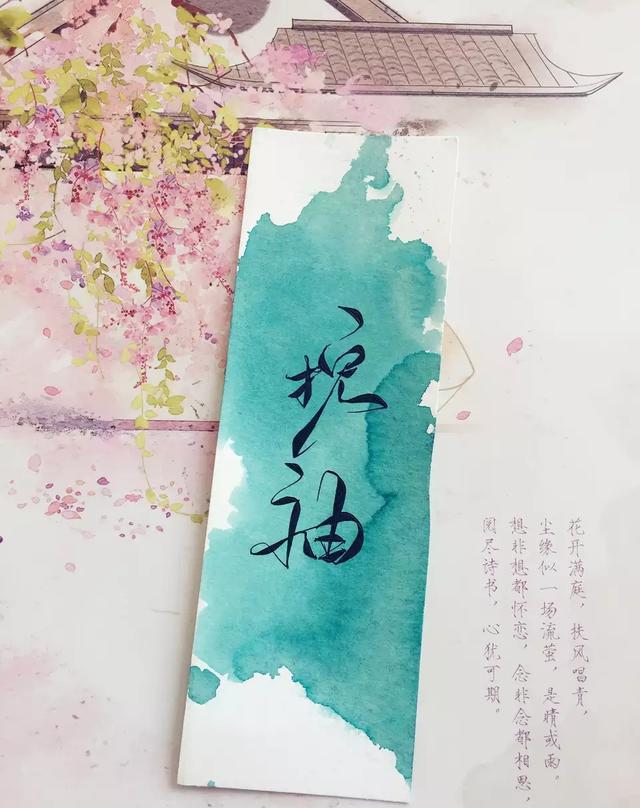 挽袖
花开满庭，扶风唱
尘缘似一场流萤，是晴或雨。
想非想都怀恋，念非念都相思，
阅尽诗书，心犹可期。